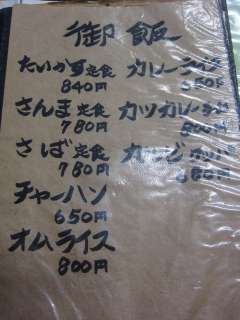 御飯
たいかま定食
840円
さんま定食
780円
さば定食
780円
チャーハン
650円
オムライス
800円
カレーライス
650円
カツカレー
800円
680円